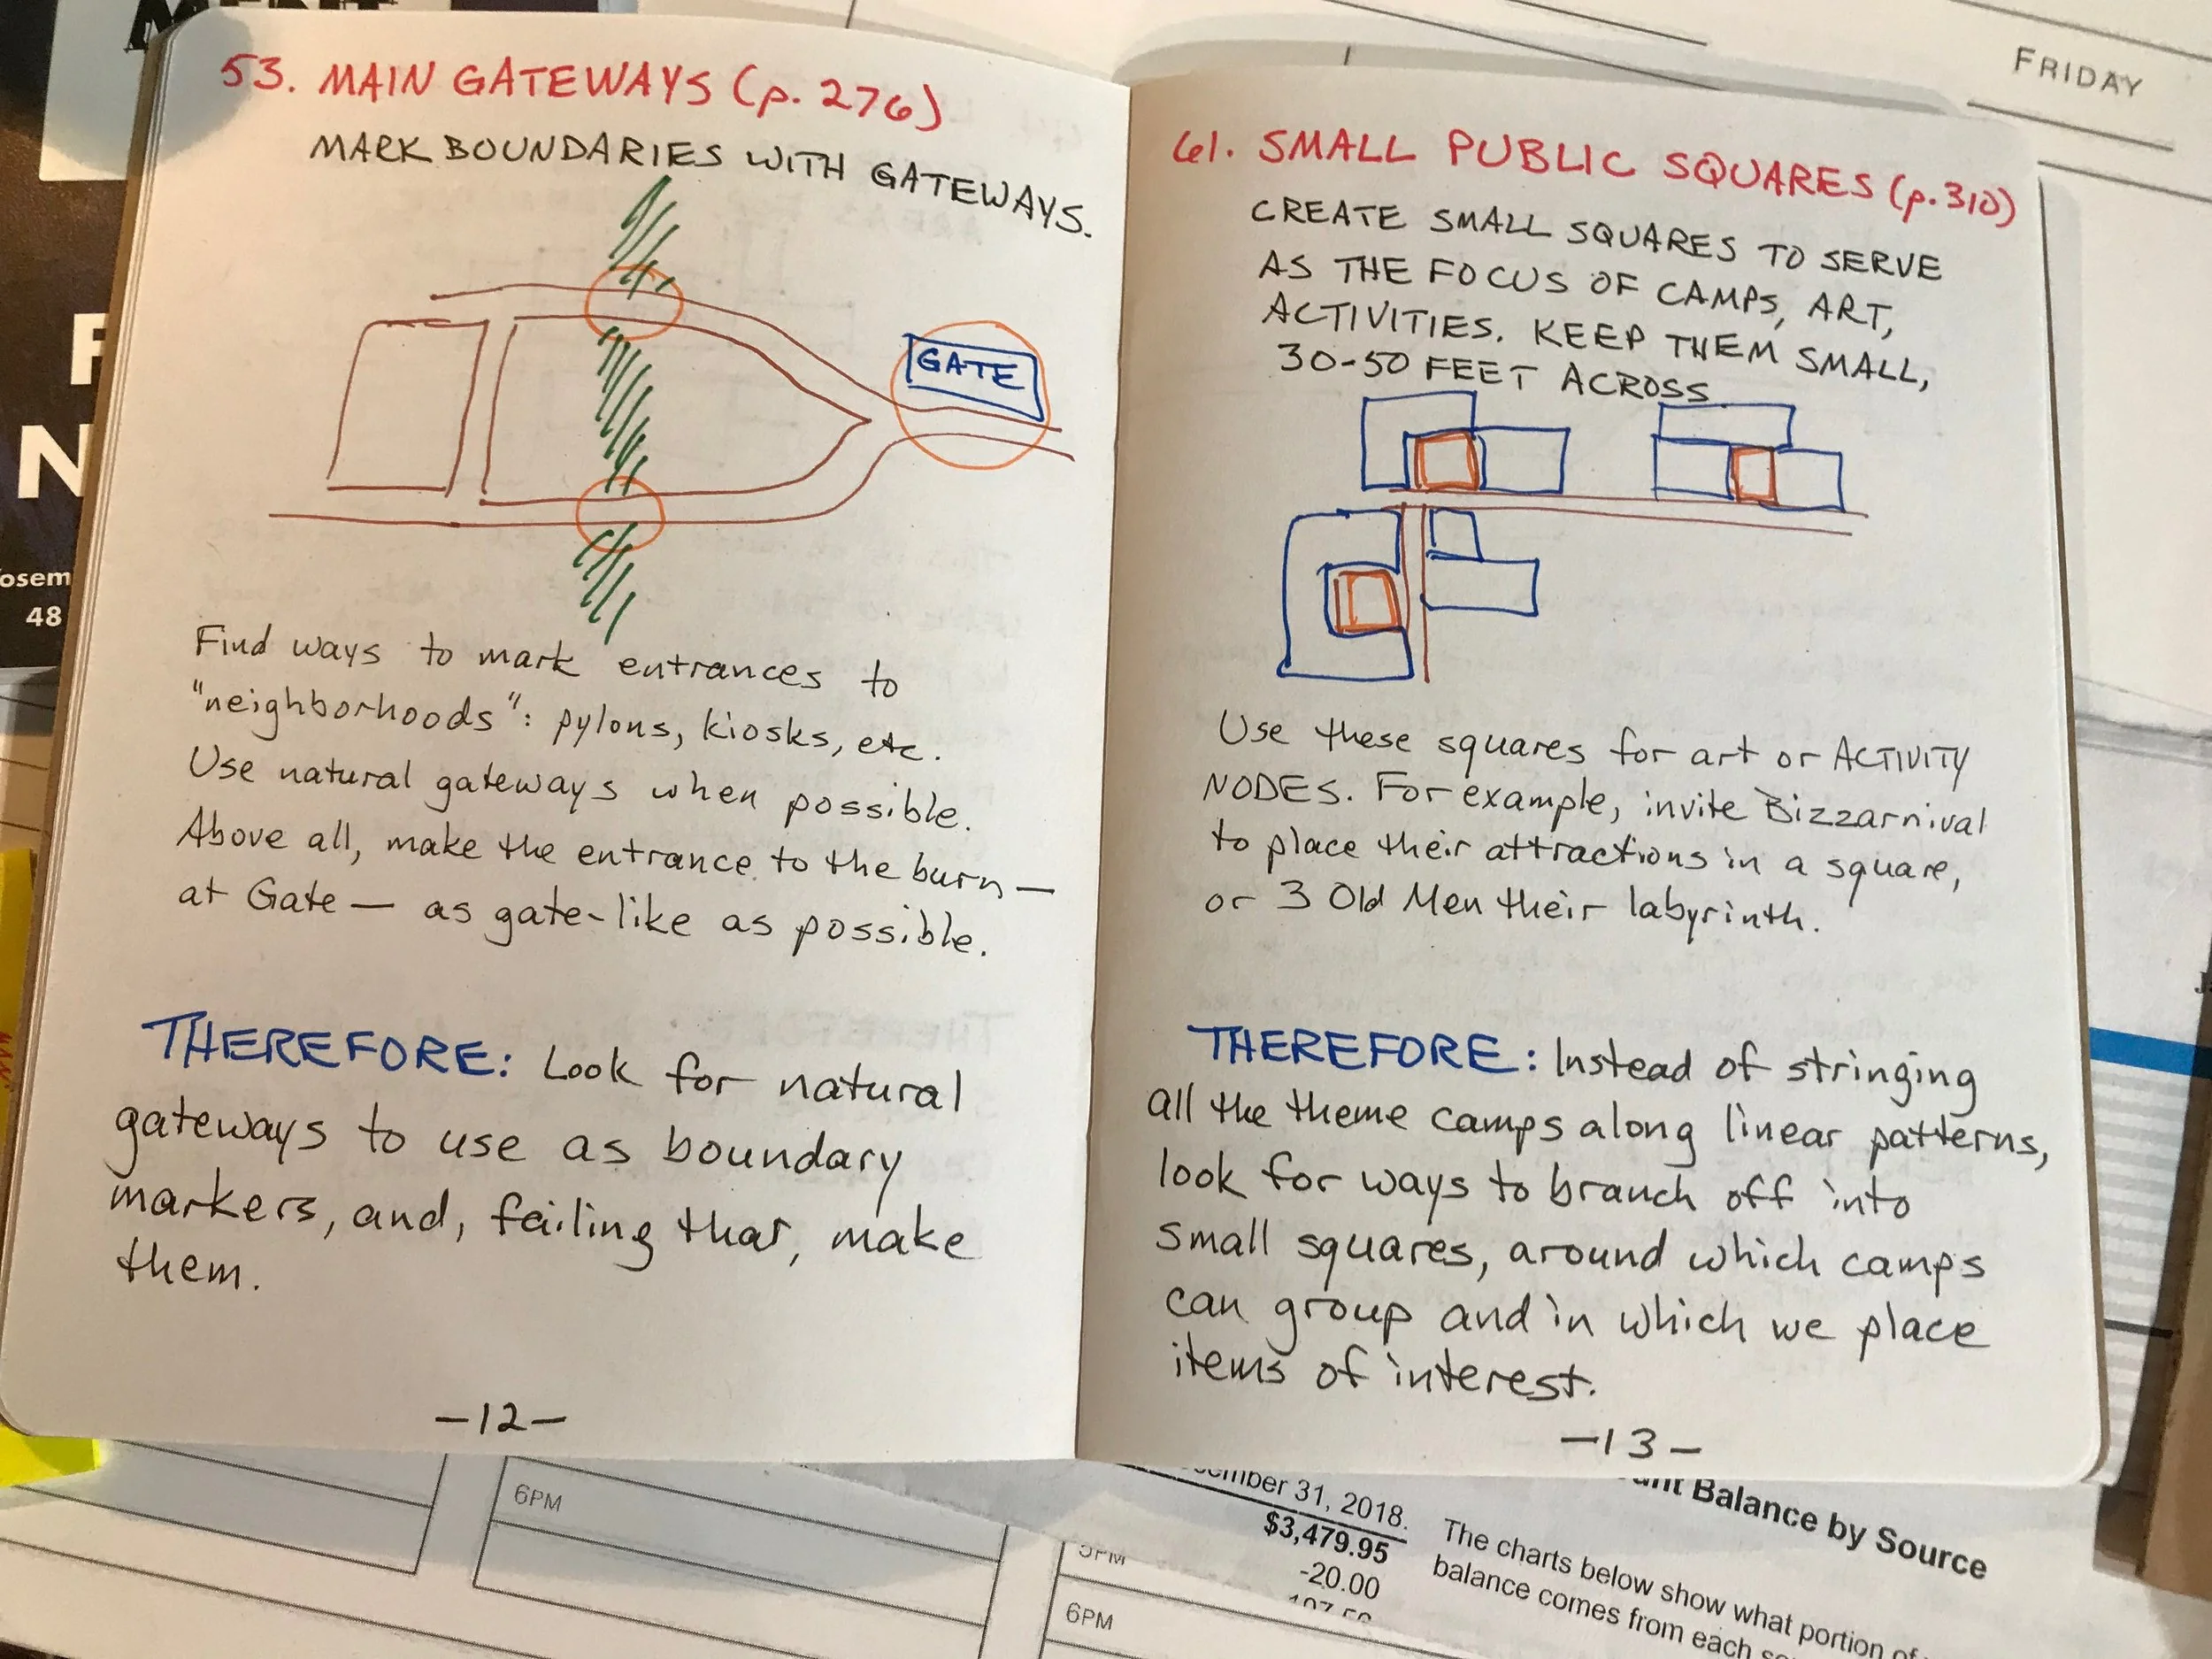 53. MAIN GATEWAYS (p. 276)
MARK BOUNDARIES WITH GATEWAYS.
GATE
Find ways to mark entrances to
"neighborhoods": pylons, kiosks, etc.
Use natural gateways when possible.
Above all, make the entrance to the burn —
at Gate — as gate-like as possible.
THEREFORE: Look for natural
gateways to use as boundary
markers, and, failing that, make
them.
-12-
61. SMALL PUBLIC SQUARES (p. 310)
CREATE SMALL SQUARES TO SERVE
AS THE FOCUS OF CAMPS, ART,
ACTIVITIES. KEEP THEM SMALL,
30-50 FEET ACROSS
Use these squares for art or ACTIVITY
NODES. For example, invite Bizzarnival
to place their attractions in a square,
or 3 Old Men their labyrinth.
THEREFORE: Instead of stringing
all the theme camps along linear patterns,
look for ways to branch off into
small squares, around which camps
can group and in which we place
items of interest.
-13-
FRIDAY
osem
48
6PM
5PM
6PM
31, 2018.
$3,479.95
-20.00
Balance by Source
The charts below show what portion of
balance comes from each